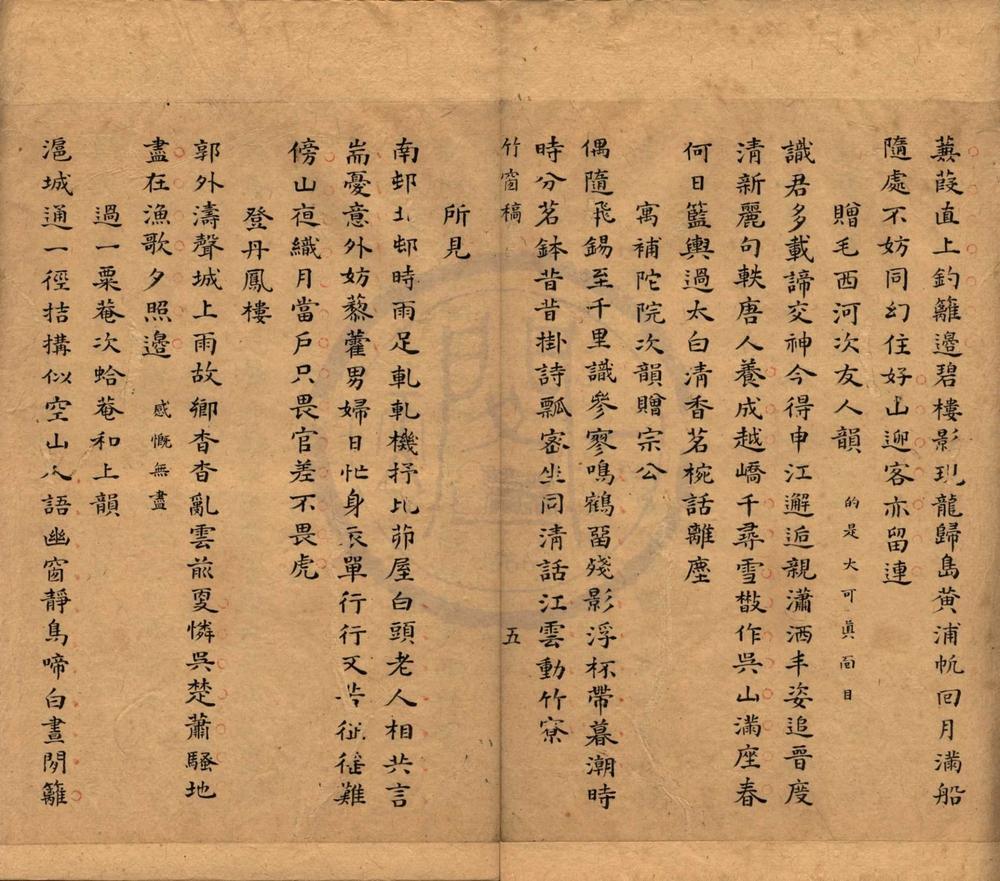 蒹葭直上釣籬邊碧樓影現龍歸島黄浦帆回月滿船
隨處不妨同幻住好山迎客亦留連
贈毛西河次友人韻 的是大可真面目
識君多載諦交神今得申江邂逅親瀟洒丰姿追晉度
清新麗句軼唐人養成越嶠千尋雪散作吳山滿座春
何日籃輿過太白清香茗椀話離塵
寓補陀院次韻贈宗公
偶隨飛錫至千里識參寥鳴鶴留殘影浮杯帶暮潮時
時分茗鉢昔昔掛詩瓢密坐同清話江雲動竹寮
竹窗稿 五
所見
南邨北邨時雨足軋軋機抒比茆屋白頭老人相共言
耑憂意外妨藜藿男婦日忙身衣單行行又苦征徭難
傍山夜織月當戶只畏官差不畏虎
登丹鳳樓
郭外濤聲城上雨故鄉杳杳亂雲前夏憐吳楚蕭騷地
盡在漁歌夕照邊 感慨無盡
過一粟菴次蛤菴和上韻
滬城通一徑拮搆似空山人語幽窗靜鳥啼白晝閒籬